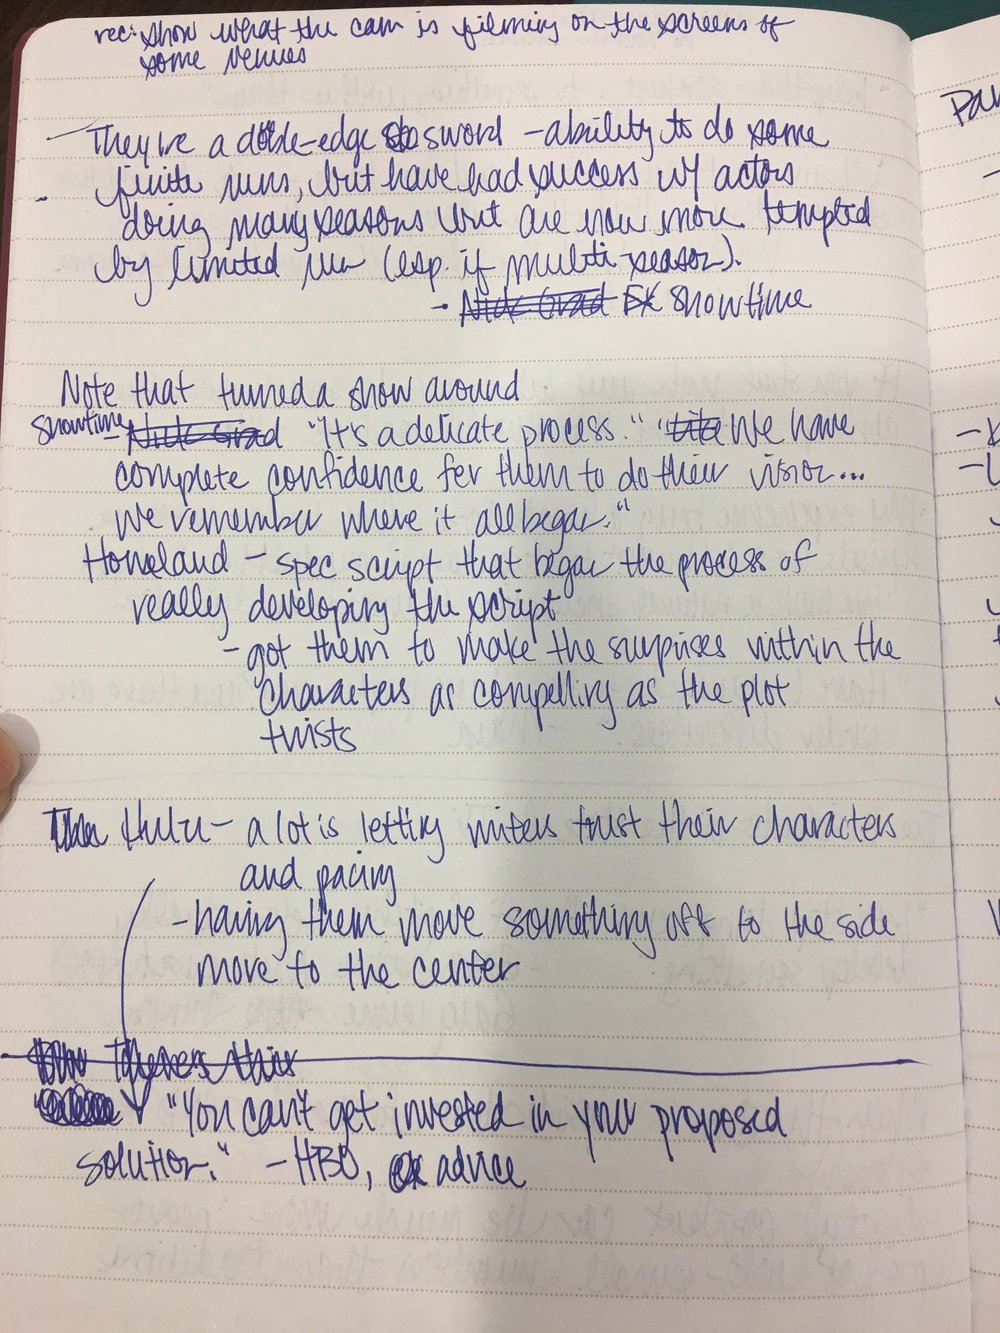 rec: show what the cam is filming on the screens of
some venues
- They're a doble-edge sword - ability to do some
finite runs, but have had success w/ actors
doing many seasons but are now more tempted
by limited run (esp. if multi-season).
- Nick Grad FX Showtime
Note that turned a show around
Showtime - Nick Grad "It's a delicate process." "We have
complete confidence for them to do their vision...
we remember where it all began."
Homeland - spec script that began the process of
really developing the script
- got them to make the surprises within the
characters as compelling as the plot
twists
Hulu - a lot is letting writers trust their characters
and pacing
- having them move something off to the side
move to the center
"You can't get invested in your proposed
solution." - HBO, advice
Par